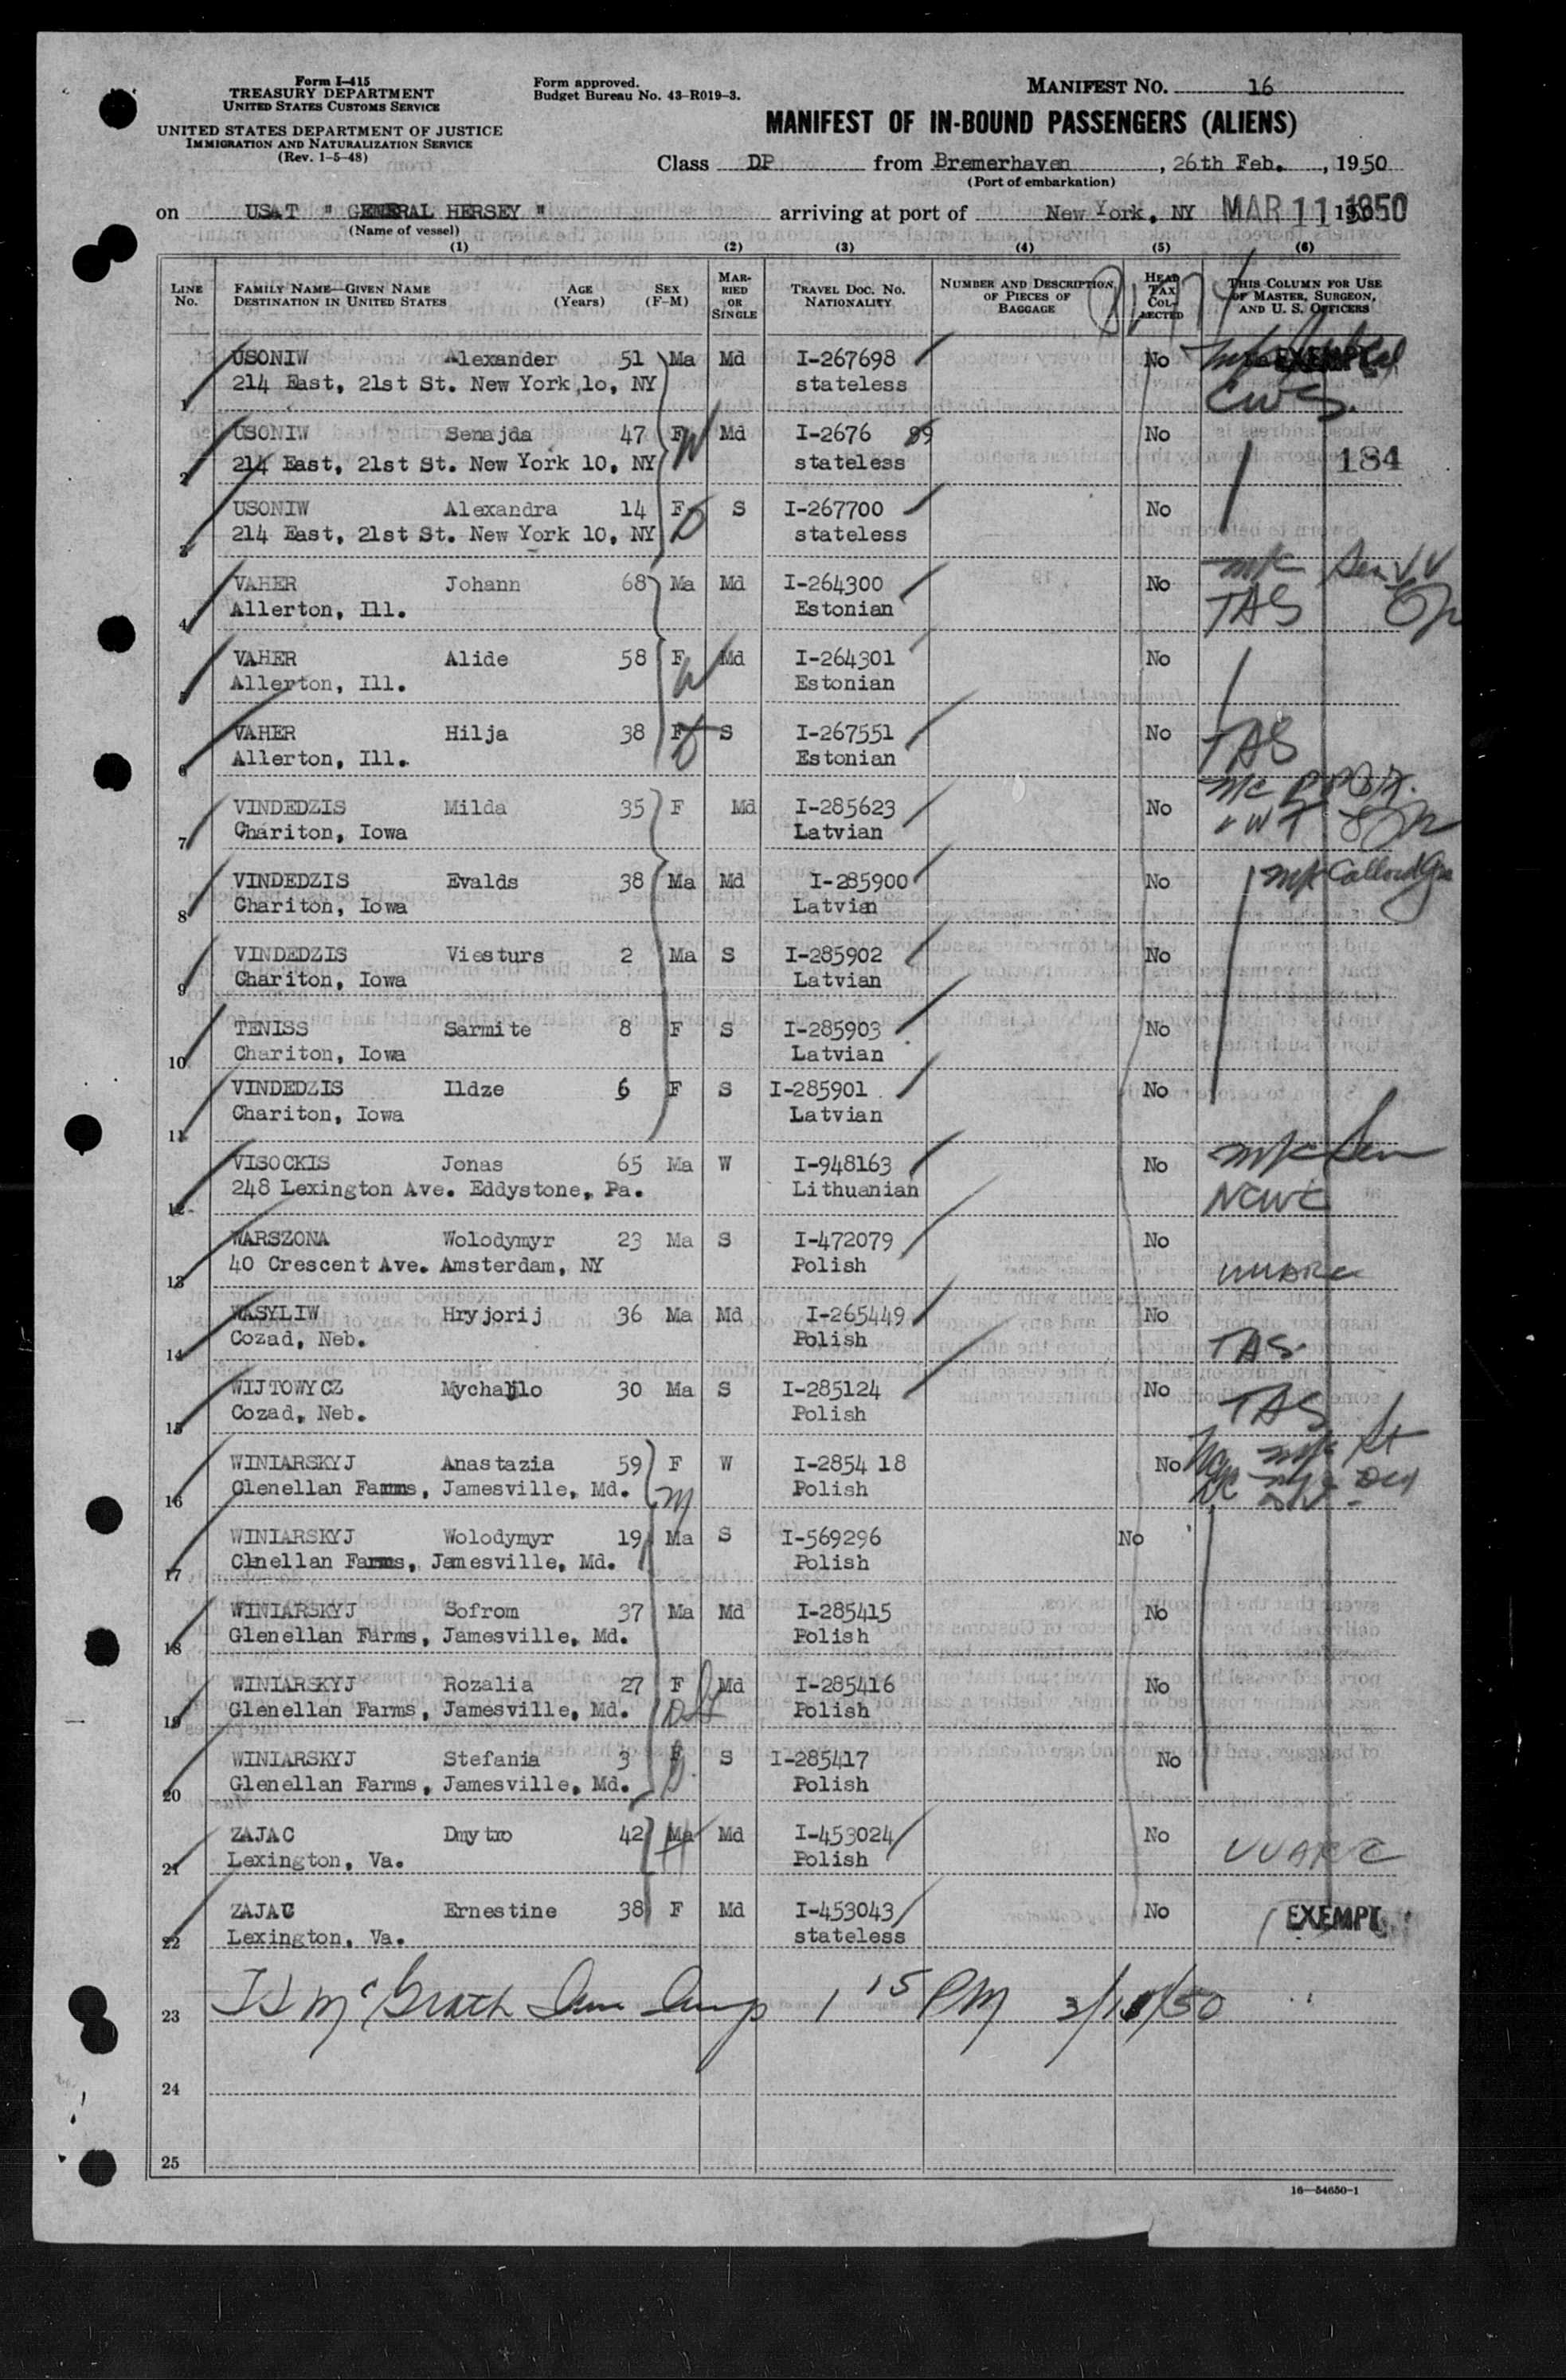 Form I-415
TREASURY DEPARTMENT
UNITED STATES CUSTOMS SERVICE
UNITED STATES DEPARTMENT OF JUSTICE
IMMIGRATION AND NATURALIZATION SERVICE
(Rev. 1-5-48)
Form approved.
Budget Bureau No. 43-R019-3.
MANIFEST NO. 16
MANIFEST OF IN-BOUND PASSENGERS (ALIENS)
Class DP from Bremerhaven, 26th Feb., 1950
(Port of embarkation)
on USAT " GENERAL HERSEY " arriving at port of New York, NY MAR 11 1950
(Name of vessel)
(1) (2) (3) (4) (5) (6)
LINE No. FAMILY NAME—GIVEN NAME DESTINATION IN UNITED STATES AGE (Years) SEX (F-M) MARRIED OR SINGLE TRAVEL DOC. NO. NATIONALITY NUMBER AND DESCRIPTION OF PIECES OF BAGGAGE HEAD TAX COLLECTED THIS COLUMN FOR USE OF MASTER, SURGEON, AND U. S. OFFICERS
1 USONIW Alexander 51 Ma Md I-267698 No EXEMPT
214 East, 21st St. New York,10, NY stateless CWS.
2 USONIW Senajda 47 F W Md I-2676 89 No
214 East, 21st St. New York 10, NY stateless 184
3 USONIW Alexandra 14 F D S I-267700 No
214 East, 21st St. New York 10, NY stateless
4 VAHER Johann 68 Ma Md I-264300 No
Allerton, Ill. Estonian TAS
5 VAHER Alide 58 F W Md I-264301 No
Allerton, Ill. Estonian
6 VAHER Hilja 38 F D S I-267551 No
Allerton, Ill. Estonian TAS
7 VINDEDZIS Milda 35 F Md I-285623 No
Chariton, Iowa Latvian
8 VINDEDZIS Evalds 38 Ma Md I-285900 No
Chariton, Iowa Latvian
9 VINDEDZIS Viesturs 2 Ma S I-285902 No
Chariton, Iowa Latvian
10 TENISS Sarmite 8 F S I-285903 No
Chariton, Iowa Latvian
11 VINDEDZIS Ildze 6 F S I-285901 No
Chariton, Iowa Latvian
12 VISOCKIS Jonas 65 Ma W I-948163 No
248 Lexington Ave. Eddystone, Pa. Lithuanian NCWC
13 WARSZONA Wolodymyr 23 Ma S I-472079 No
40 Crescent Ave. Amsterdam, NY Polish UUARC
14 WASYLIW Hryjorij 36 Ma Md I-265449 No
Cozad, Neb. Polish TAS
15 WIJTOWYCZ Mychajlo 30 Ma S I-285124 No
Cozad, Neb. Polish TAS
16 WINIARSKYJ Anastazia 59 F W I-2854 18 No
Glenellan Farms, Jamesville, Md. M Polish
17 WINIARSKYJ Wolodymyr 19 Ma S I-569296 No
Clnellan Farms, Jamesville, Md. Polish
18 WINIARSKYJ Sofrom 37 Ma Md I-285415 No
Glenellan Farms, Jamesville, Md. Polish
19 WINIARSKYJ Rozalia 27 F Md I-285416 No
Glenellan Farms, Jamesville, Md. Polish
20 WINIARSKYJ Stefania 3 F S I-285417 No
Glenellan Farms, Jamesville, Md. Polish
21 ZAJAC Dmytro 42 Ma H Md I-453024 No
Lexington, Va. Polish UUARC
22 ZAJAC Ernestine 38 F Md I-453043 No
Lexington, Va. stateless EXEMPT
23 McGrath 1 15 PM 3/11/50
24
25
16—54650-1